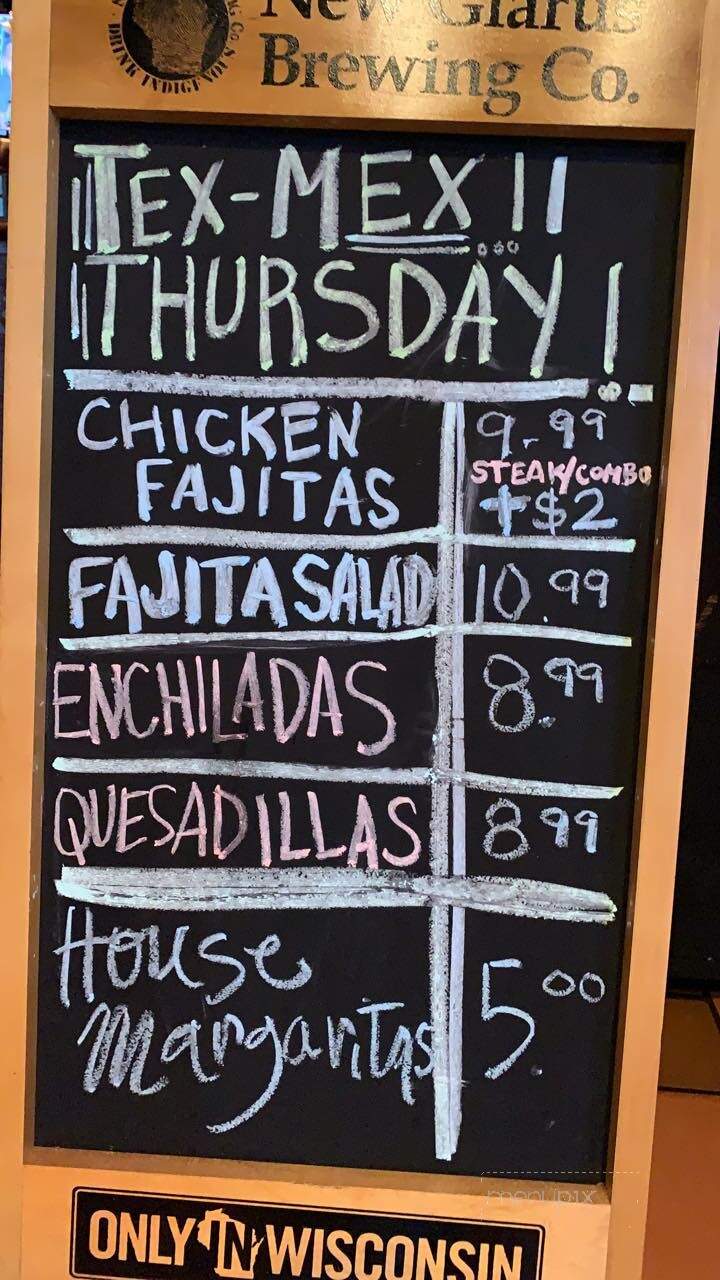 New Glarus
Brewing Co.
DRINK INDIGENOUS
TEX-MEX !!
THURSDAY !
CHICKEN 9.99
STEAK/COMBO
FAJITAS +$2
FAJITA SALAD 10.99
ENCHILADAS 8.99
QUESADILLAS 8 99
House
Margaritas 5.00
menupix
ONLY IN WISCONSIN